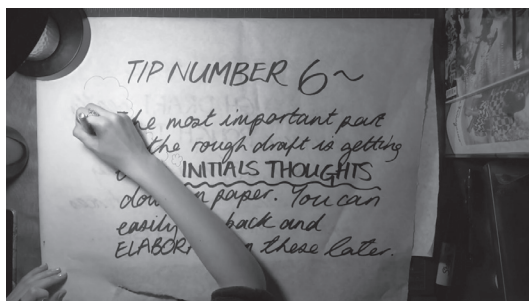 TIP NUMBER 6~
The most important part
the rough draft is getting
INITIALS THOUGHTS
paper. You can
easily back and
these later.